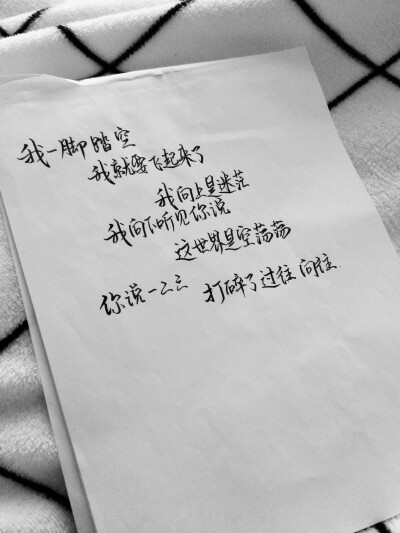 我一脚踏空
我就要飞起来了
我向上是迷茫
我向下听见你说
这世界是空荡荡
你说一二三 打碎了过往 向往.